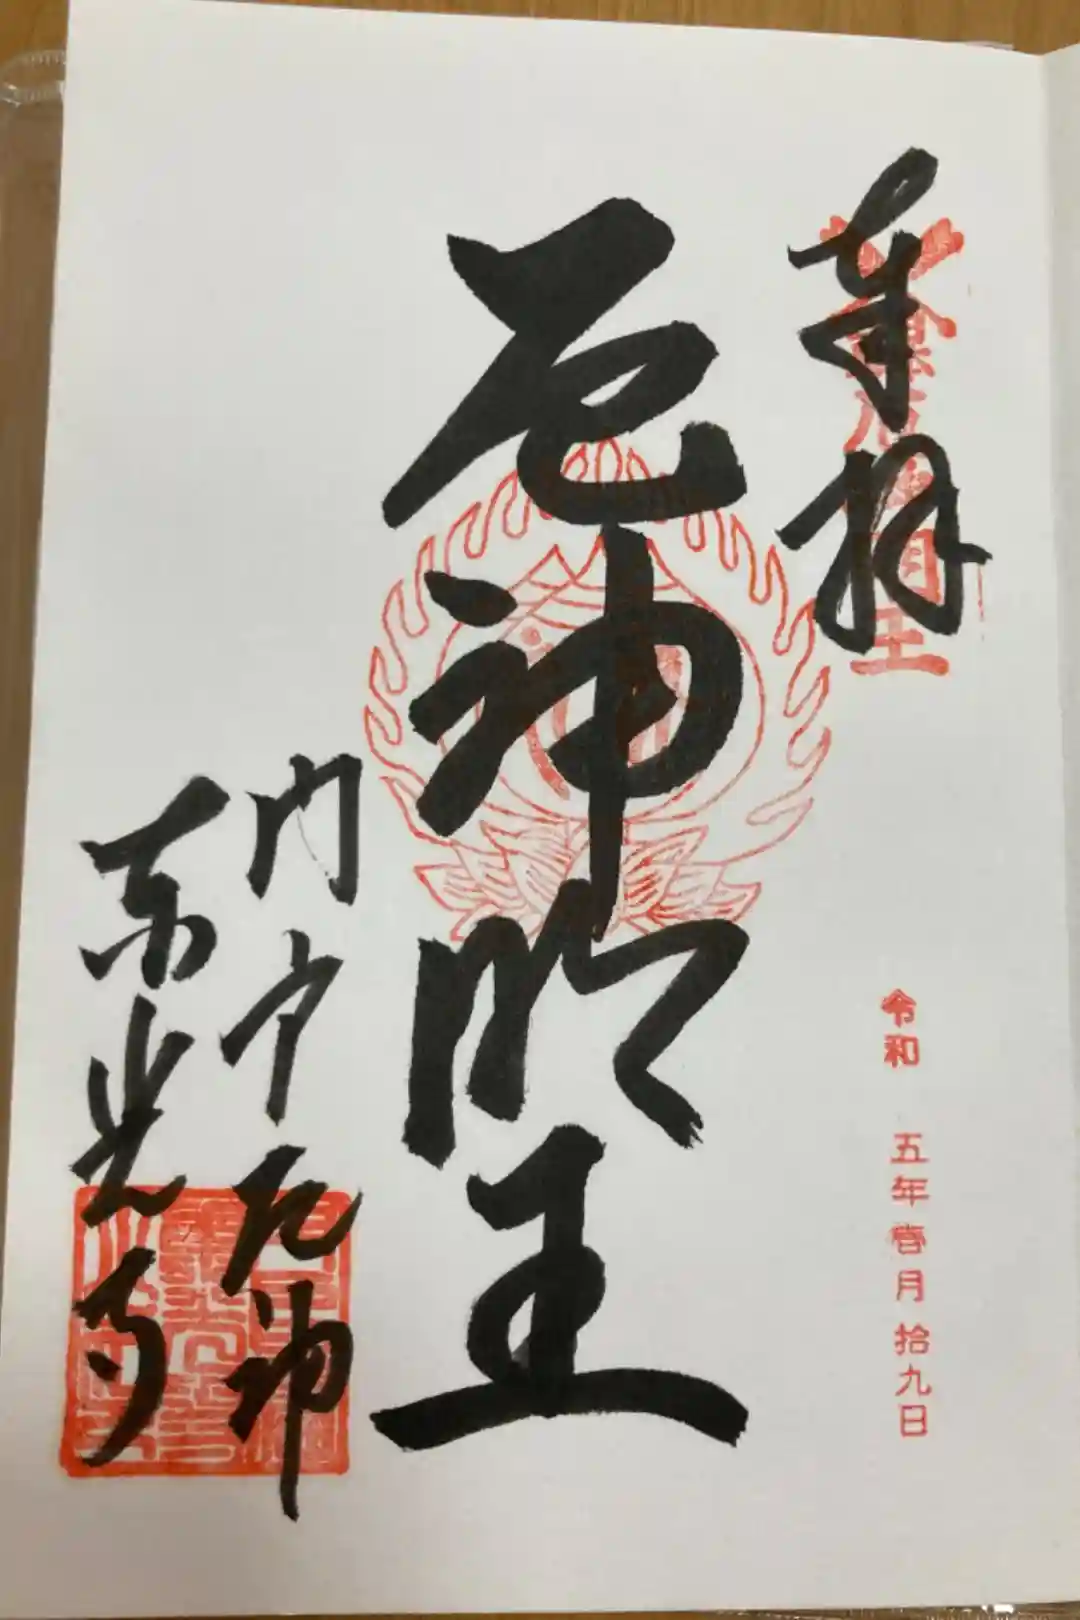 奉拝
令和 五年壱月拾九日
厄神明王
門戸厄神
東光寺